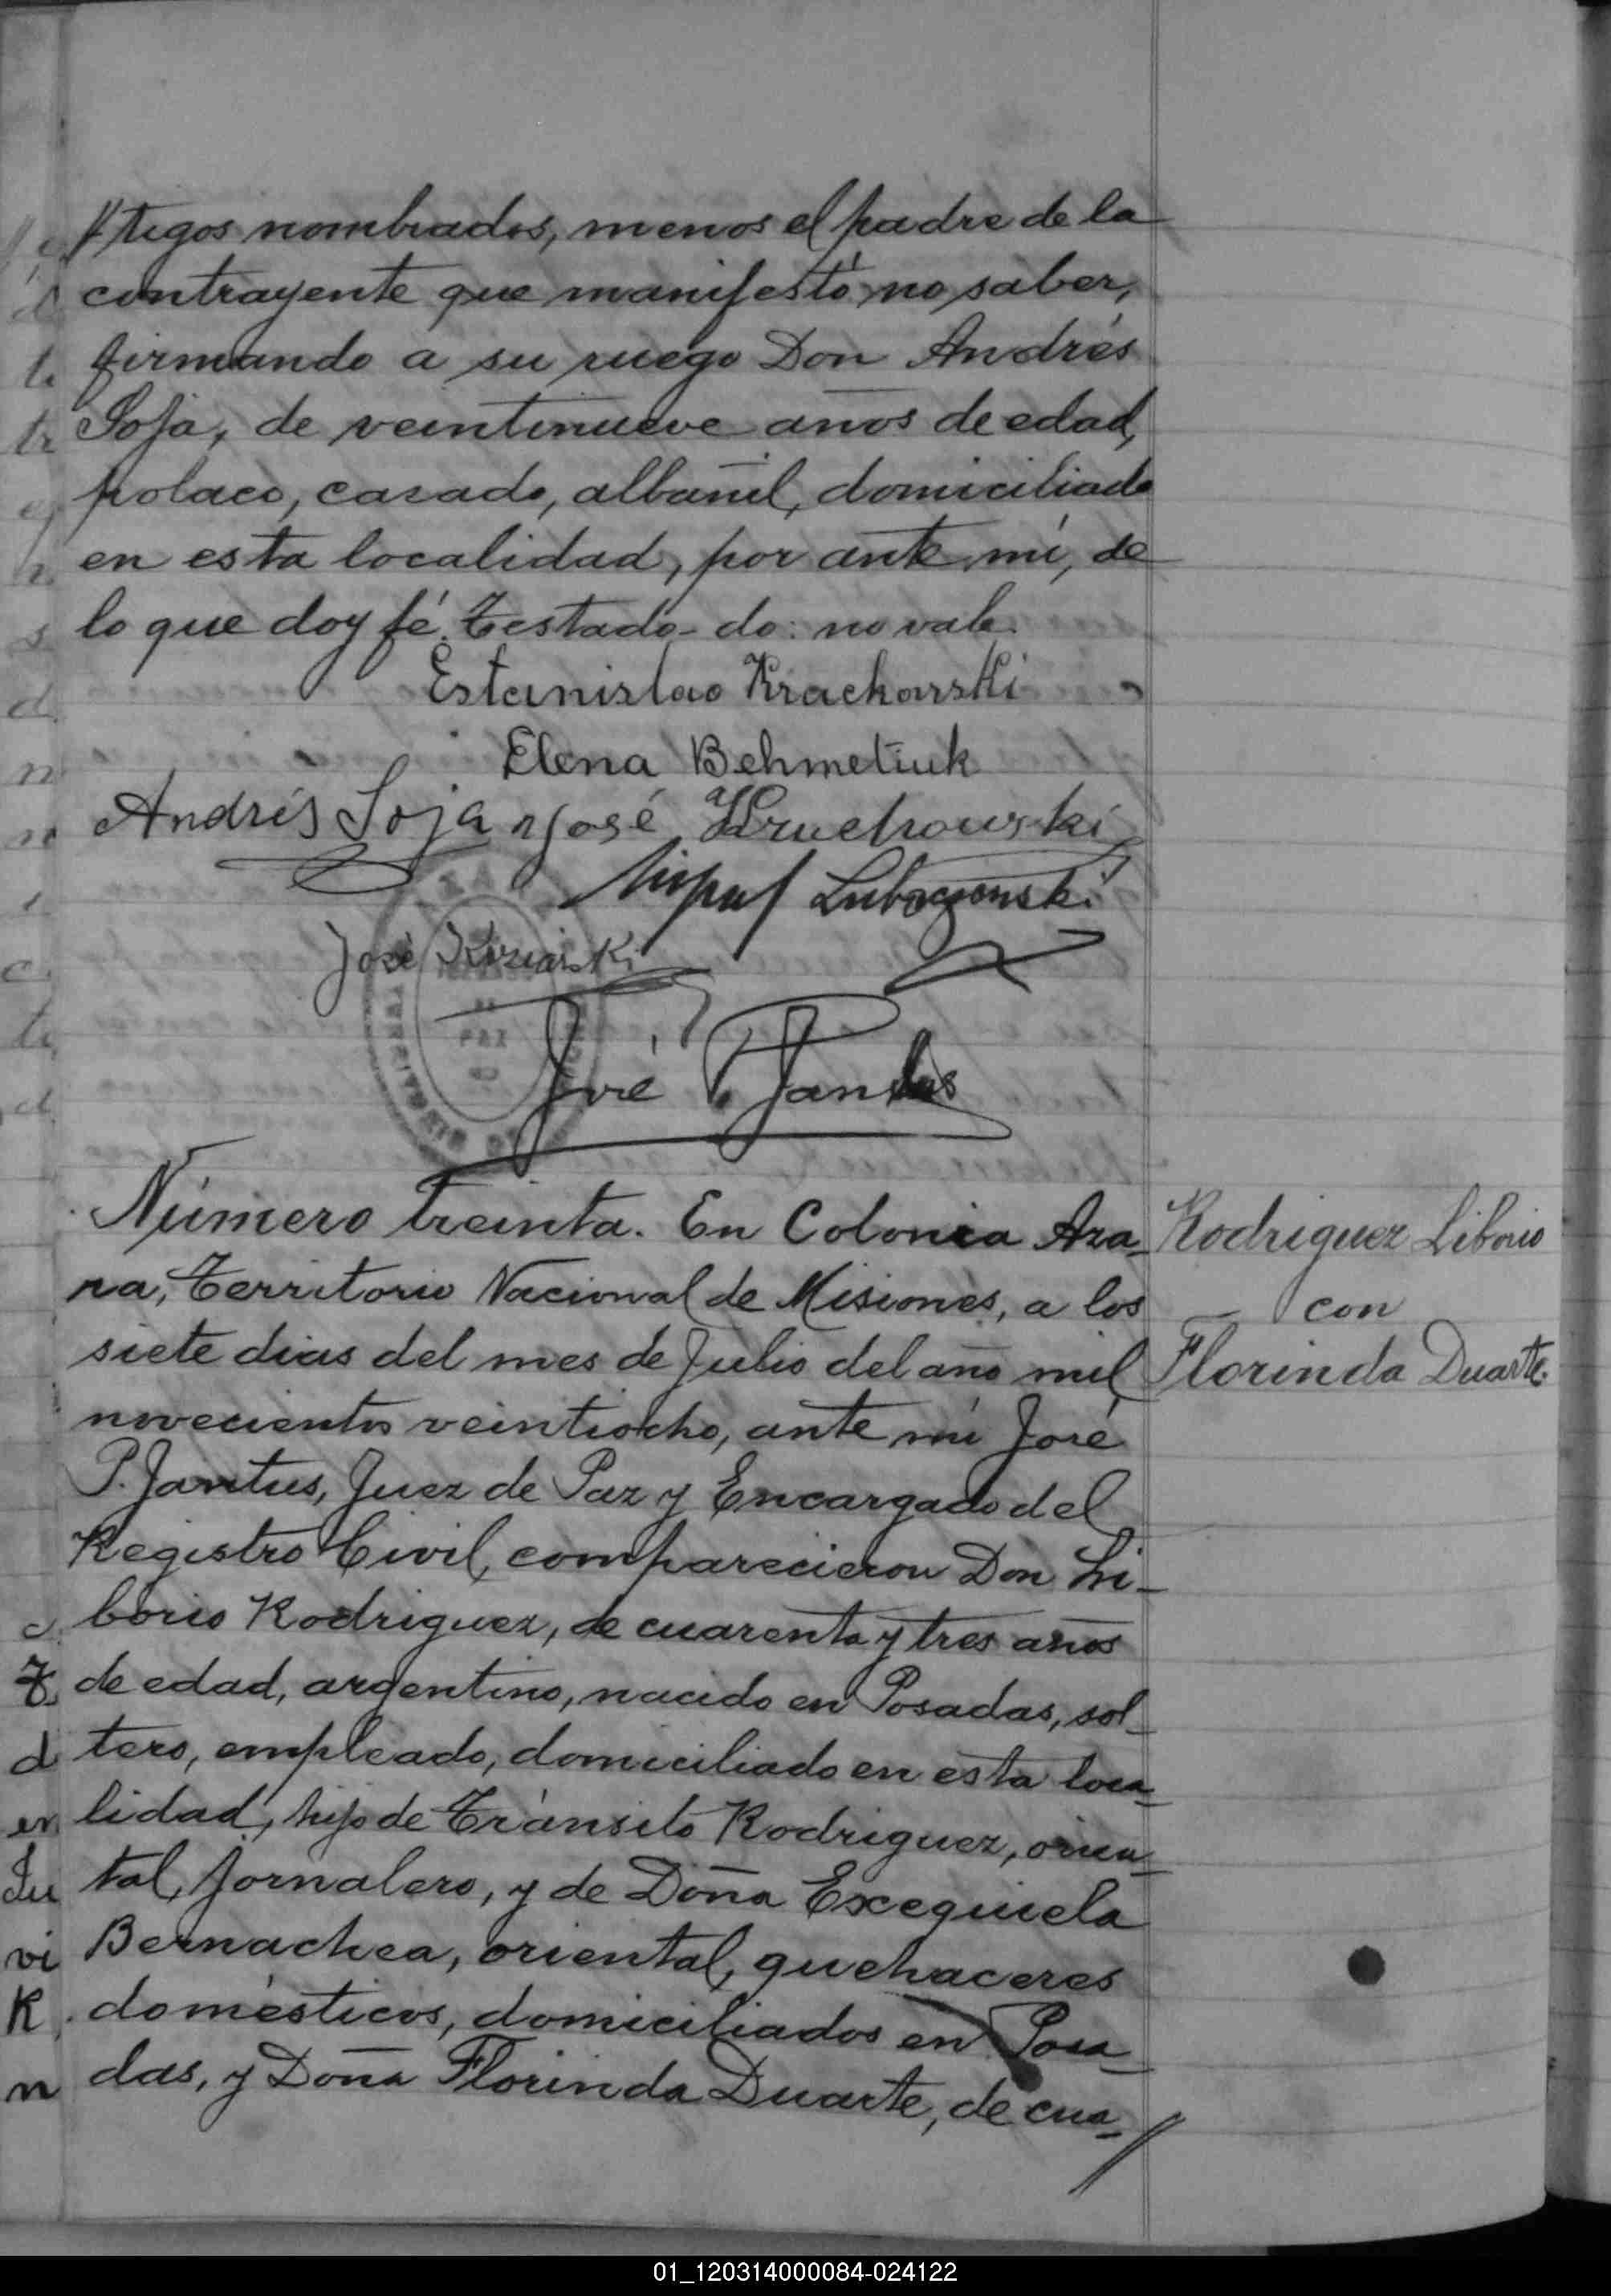 //tigos nombrados, menos el padre de la
contrayente que manifestó no saber,
firmando a su ruego Don Andrés
Soja, de veintinueve años de edad,
polaco, casado, albañil, domiciliado
en esta localidad, por ante mí, de
lo que doy fé. Testado-do: no vale.
Estanislao Krachowski
Elena Behmetiuk
Andrés Soja José Kruchowski
José
José P. Jantus
Número treinta. En Colonia Aza-
ra, Territorio Nacional de Misiones, a los
siete dias del mes de Julio del año mil
novecientos veintiocho, ante mí José
P. Jantus, Juez de Paz y Encargado del
Registro Civil, comparecieron Don Li-
borio Rodriguez, de cuarenta y tres años
de edad, argentino, nacido en Posadas, sol-
tero, empleado, domiciliado en esta loca-
lidad, hijo de Tránsito Rodriguez, orien-
tal, jornalero, y de Doña Exequiela
Bernachea, oriental, quehaceres
domésticos, domiciliados en Posa-
das, y Doña Florinda Duarte, de cua-//
Rodriguez Liborio
con
Florinda Duarte.
01_120314000084-024122